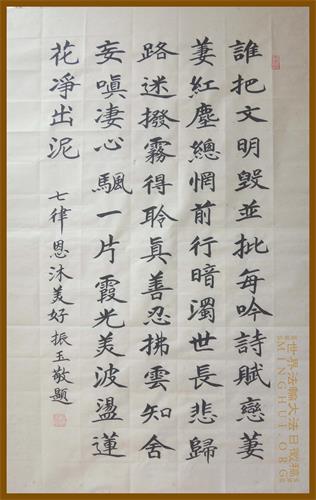 誰把文明毀並批每吟詩賦戀萋
萋紅塵總惘前行暗濁世長悲歸
路迷撥霧得聆真善忍拂雲知舍
妄嗔淒心颿一片霞光美波盪蓮
花淨出泥
七律恩沐美好振玉敬題
世界法輪大法日徵稿
MINGHUI.ORG